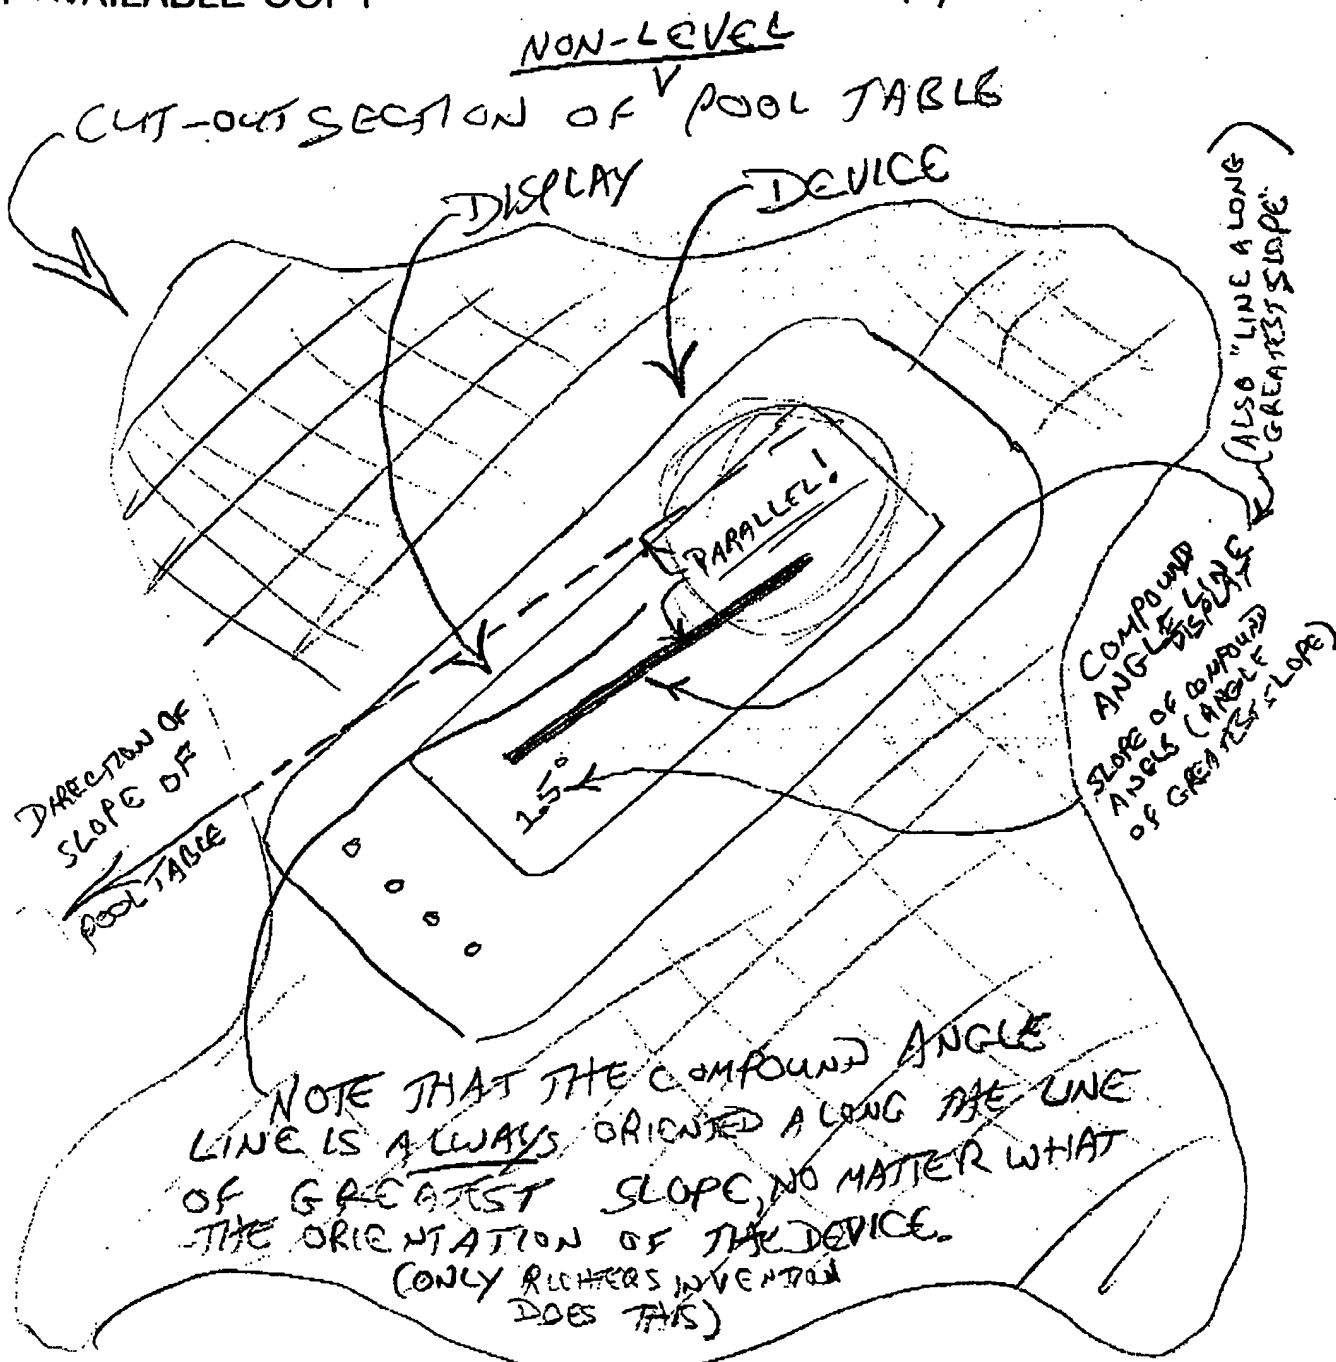 AVAILABLE COPY
NON-LEVEL
V
CUT-OUT SECTION OF POOL TABLE
DISPLAY
DEVICE
(ALSO "LINE ALONG
GREATEST SLOPE"
)
PARALLEL!
COMPOUND
ANGLE LINE
DISPLAY
SLOPE OF COMPOUND
ANGELS (ANGLE
OF GREATEST SLOPE)
1.5°
DIRECTION OF
SLOPE OF
POOL TABLE
NOTE THAT THE COMPOUND ANGLE
LINE IS ALWAYS ORIENTED ALONG THE LINE
OF GREATEST SLOPE, NO MATTER WHAT
THE ORIENTATION OF THE DEVICE.
(ONLY RICHTERS INVENTION
DOES THIS)